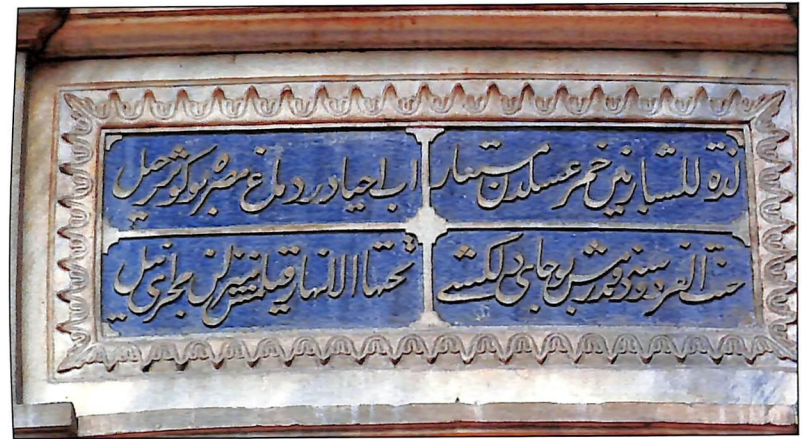 لذة للشاربين خمر عسلدن مستعار
اب احيادر دماغ مصره بو كوثر جميل
جنت الفردوسه دوندرمش بو جاى دلكشى
تحتها الانهار قيلمش منزلن مجراى نيل